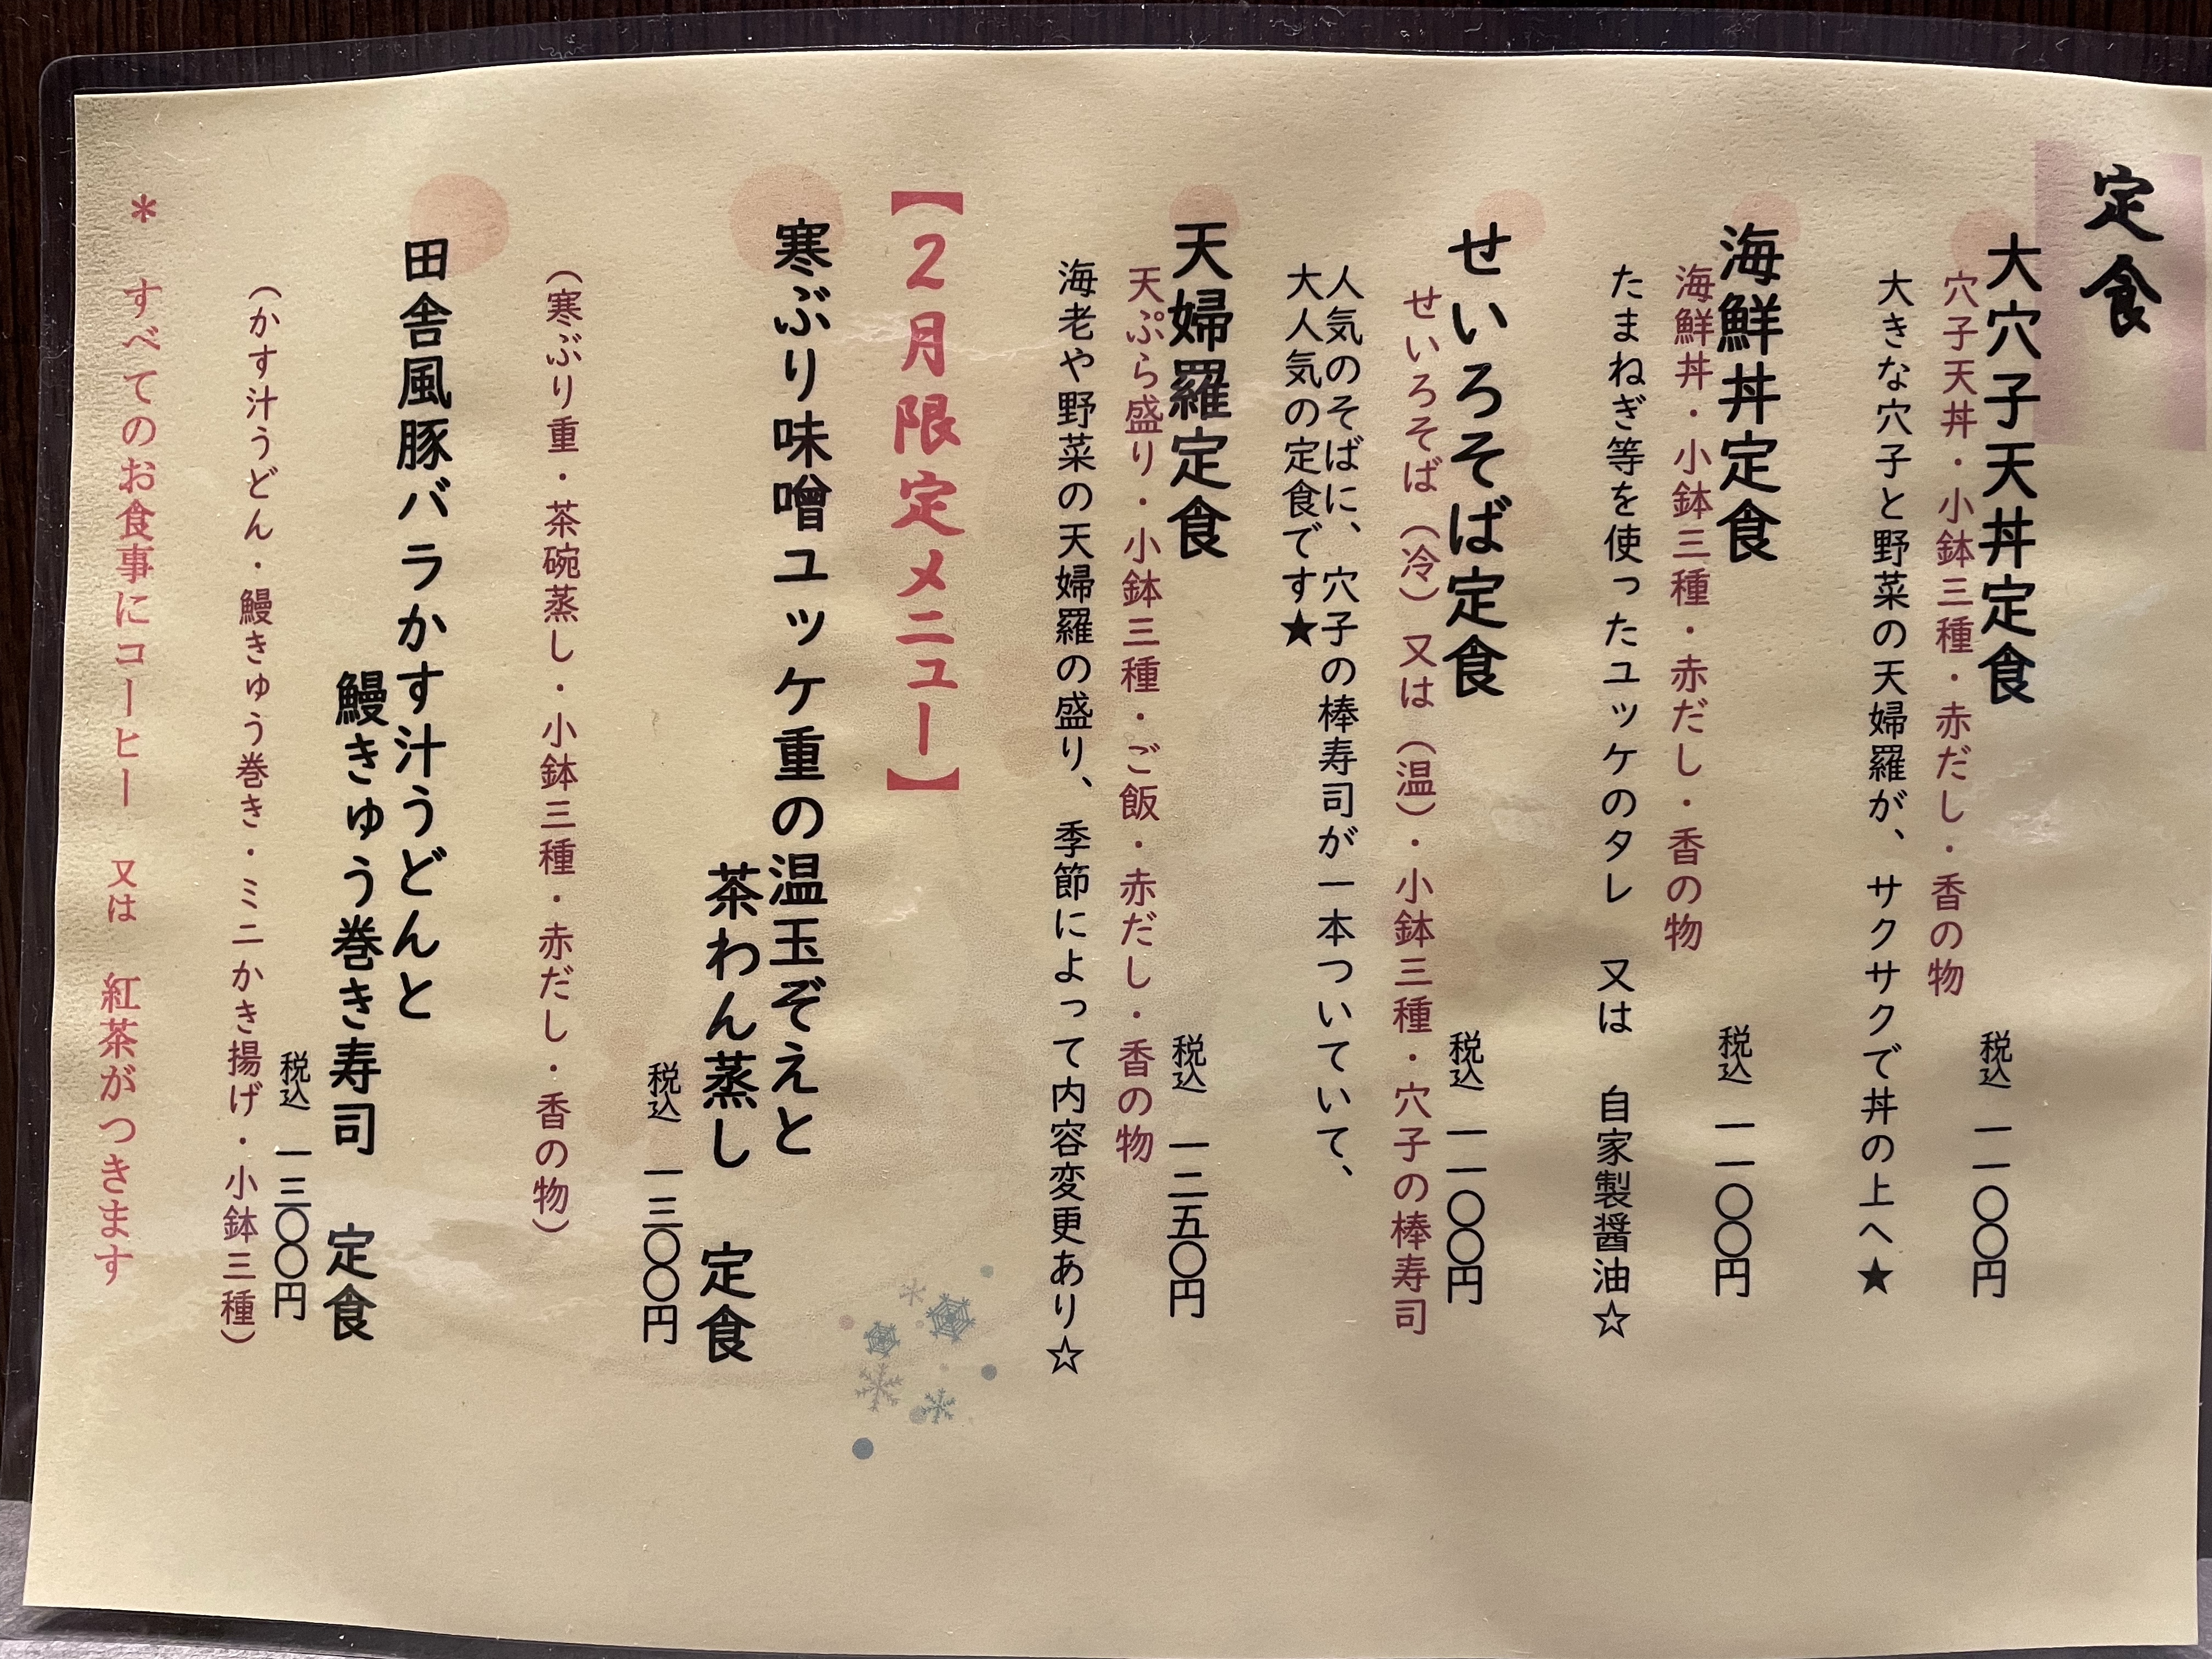 定食
大穴子天丼定食
税込 一一〇〇円
穴子天丼・小鉢三種・赤だし・香の物
大きな穴子と野菜の天婦羅が、サクサクで丼の上へ★
海鮮丼定食
税込 一一〇〇円
海鮮丼・小鉢三種・赤だし・香の物
たまねぎ等を使ったユッケのタレ 又は 自家製醤油☆
せいろそば定食
税込 一一〇〇円
せいろそば（冷）又は（温）・小鉢三種・穴子の棒寿司
人気のそばに、穴子の棒寿司が一本ついていて、
大人気の定食です★
天婦羅定食
税込 一二五〇円
天ぷら盛り・小鉢三種・ご飯・赤だし・香の物
海老や野菜の天婦羅の盛り、季節によって内容変更あり☆
【２月限定メニュー】
寒ぶり味噌ユッケ重の温玉ぞえと
茶わん蒸し 定食
税込 一三〇〇円
（寒ぶり重・茶碗蒸し・小鉢三種・赤だし・香の物）
田舎風豚バラかす汁うどんと
鰻きゅう巻き寿司 定食
税込 一三〇〇円
（かす汁うどん・鰻きゅう巻き・ミニかき揚げ・小鉢三種）
＊ すべてのお食事にコーヒー 又は 紅茶がつきます